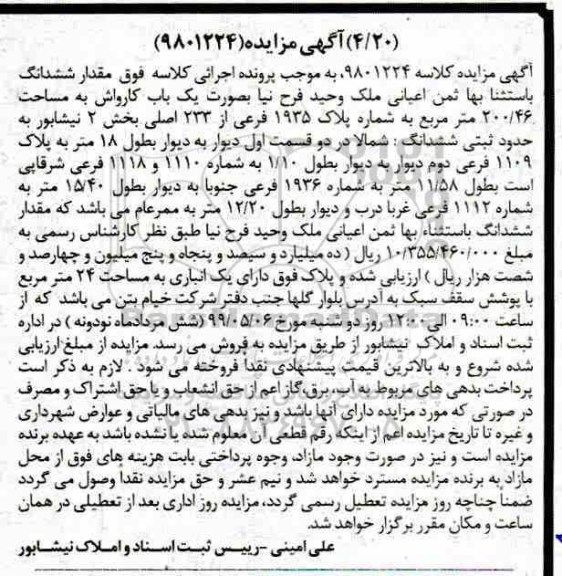 (۴/۲۰) آگهی مزایده (۹۸۰۱۲۲۴)
آگهی مزایده کلاسه ۹۸۰۱۲۲۴، به موجب پرونده اجرائی کلاسه فوق مقدار ششدانگ
باستثنا بها ثمن اعیانی ملک وحید فرح نیا بصورت یک باب کارواش به مساحت
۲۰۰/۴۶ متر مربع به شماره پلاک ۱۹۳۵ فرعی از ۲۳۳ اصلی بخش ۲ نیشابور به
حدود ثبتی ششدانگ : شمالا در دو قسمت اول دیوار به دیوار بطول ۱۸ متر به پلاک
۱۱۰۹ فرعی دوم دیوار به دیوار بطول ۱/۱۰ به شماره ۱۱۱۰ و ۱۱۱۸ فرعی شرقاپی
است بطول ۱۱/۵۸ متر به شماره ۱۹۳۶ فرعی جنوبا به دیوار بطول ۱۵/۴۰ متر به
شماره ۱۱۱۲ فرعی غربا درب و دیوار بطول ۱۲/۲۰ متر به ممرعام می باشد که مقدار
ششدانگ باستثناء بها ثمن اعیانی ملک وحید فرح نیا طبق نظر کارشناس رسمی به
مبلغ ۱۰/۳۵۵/۴۶۰/۰۰۰ ریال ( ده میلیارد و سیصد و پنجاه و پنج میلیون و چهارصد و
شصت هزار ریال ) ارزیابی شده و پلاک فوق دارای یک انباری به مساحت ۲۴ متر مربع
با پوشش سقف سبک به آدرس بلوار گلها جنب دفتر شرکت خیام بتن می باشد که از
ساعت ۰۹:۰۰ الی ۱۲:۰۰ روز دو شنبه مورخ ۹۹/۰۵/۰۶ (شش مردادماه نودونه ) در اداره
ثبت اسناد و املاک نیشابور از طریق مزایده به فروش می رسد. مزایده از مبلغ ارزیابی
شده شروع و به بالاترین قیمت پیشنهادی نقدا فروخته می شود . لازم به ذکر است
پرداخت بدهی های مربوط به آب، برق، گاز اعم از حق انشعاب و یا حق اشتراک و مصرف
در صورتی که مورد مزایده دارای آنها باشد و نیز بدهی های مالیاتی و عوارض شهرداری
و غیره تا تاریخ مزایده اعم از اینکه رقم قطعی آن معلوم شده یا نشده باشد به عهده برنده
مزایده است و نیز در صورت وجود مازاد، وجوه پرداختی بابت هزینه های فوق از محل
مازاد به برنده مزایده مسترد خواهد شد و نیم عشر و حق مزایده نقداً وصول می گردد
ضمنا چناچه روز مزایده تعطیل رسمی گردد، مزایده روز اداری بعد از تعطیلی در همان
ساعت و مکان مقرر برگزار خواهد شد.
علی امینی -رییس ثبت اسناد و املاک نیشابور